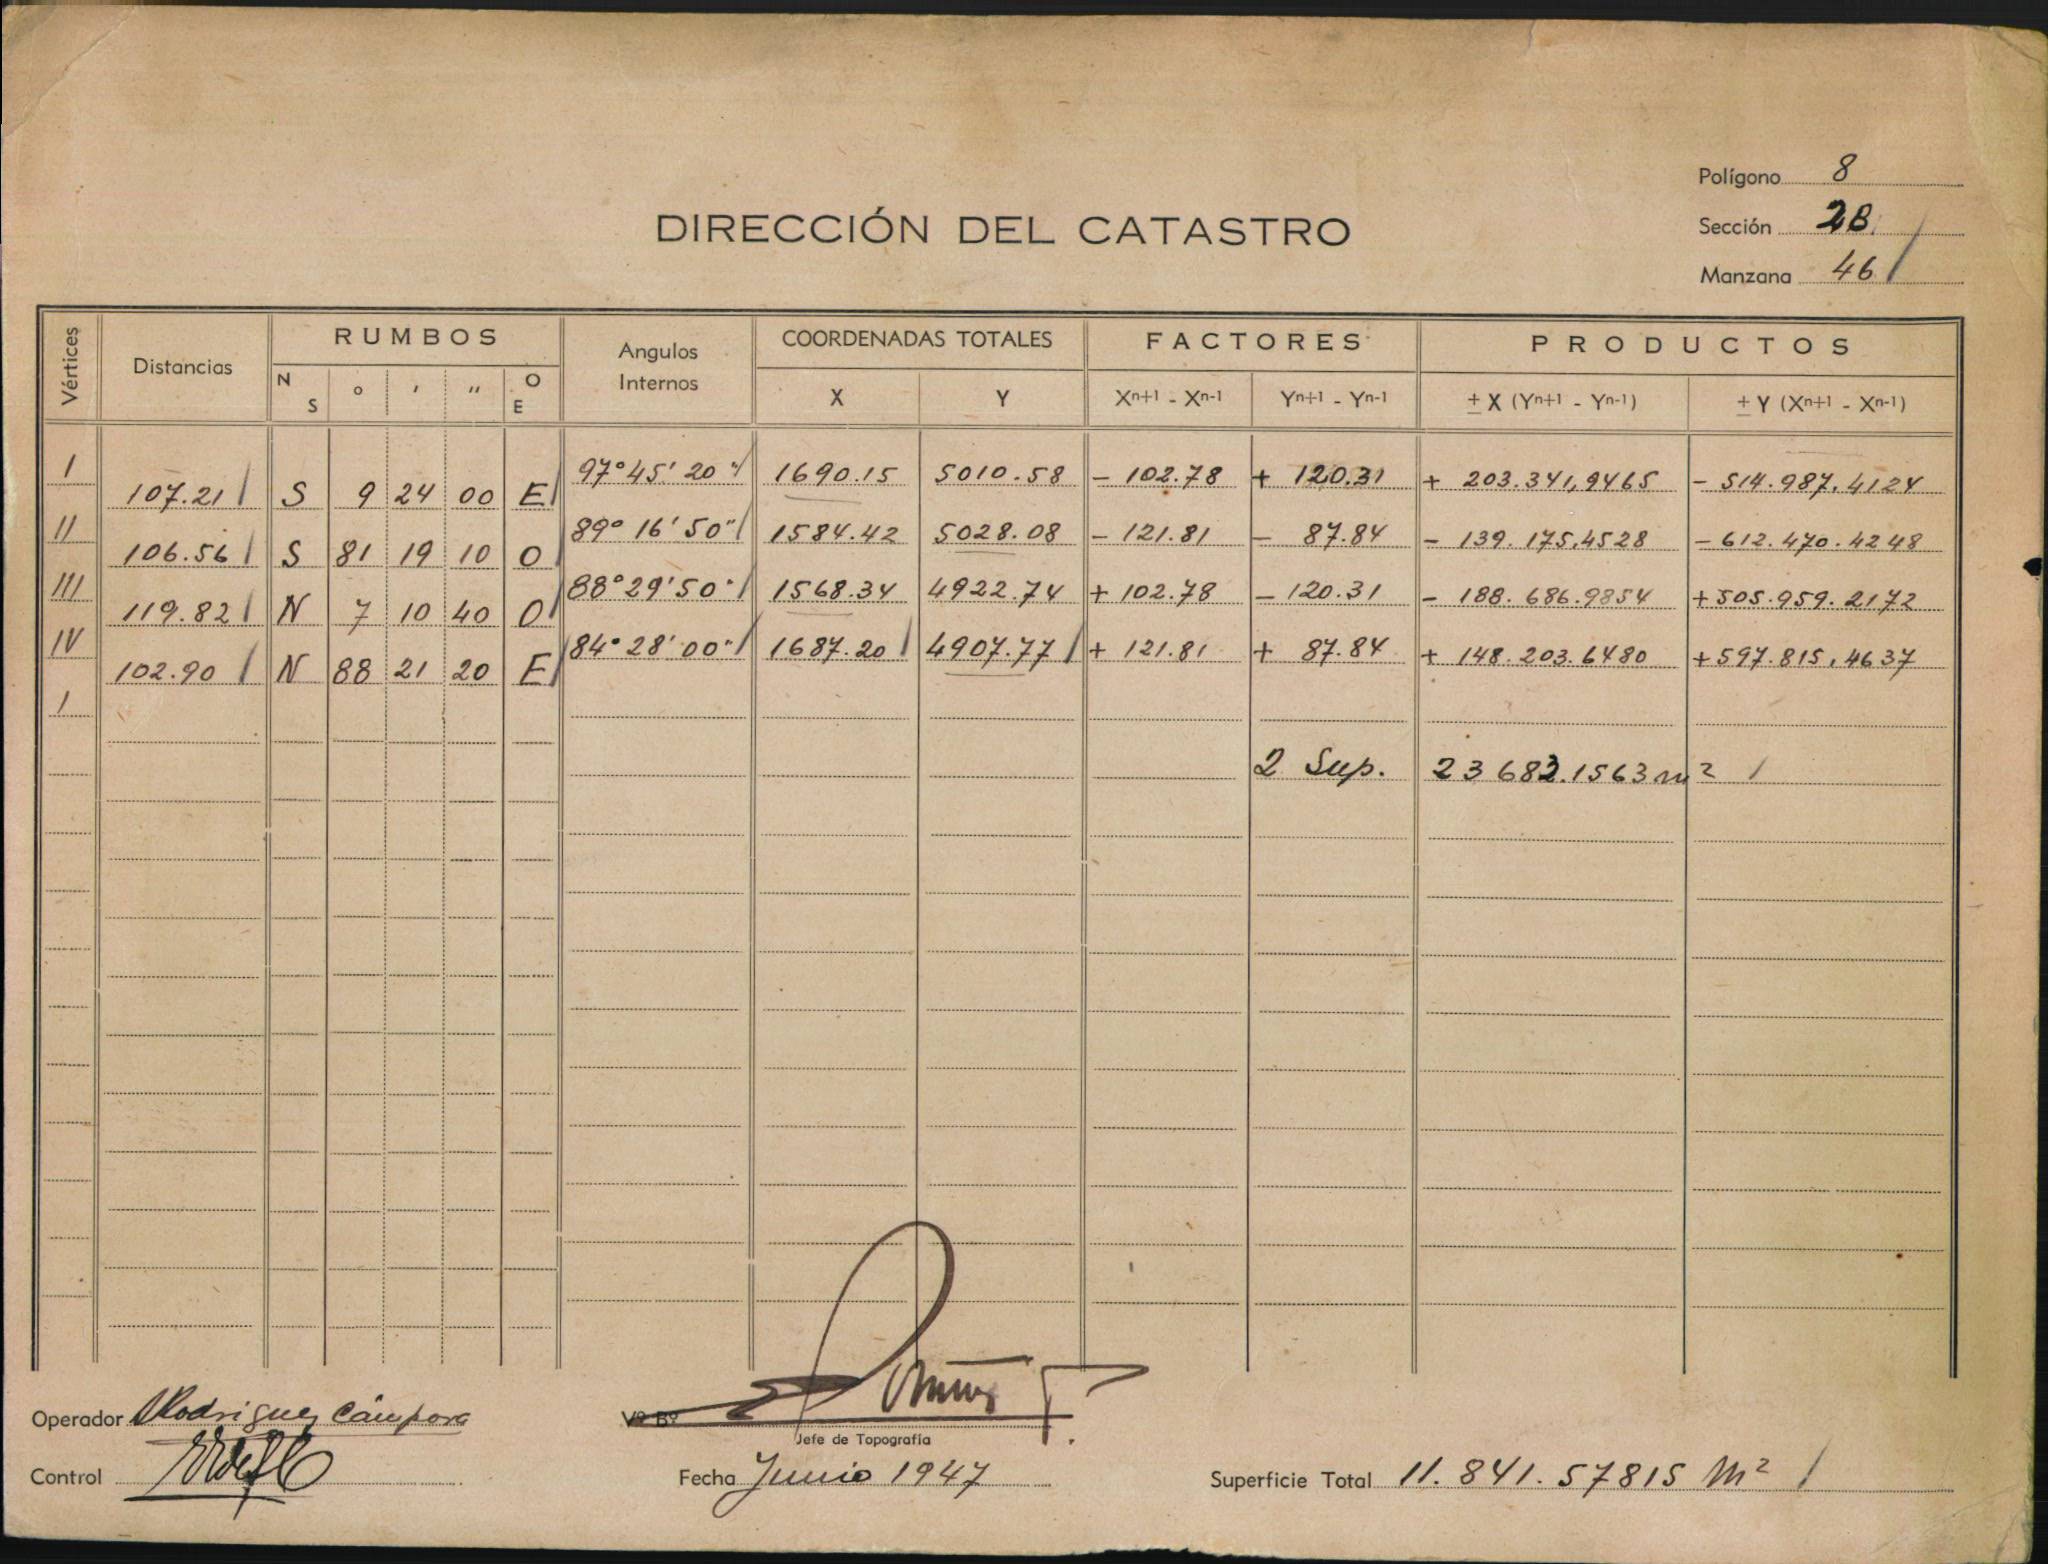 Polígono 8
DIRECCIÓN DEL CATASTRO
Sección 2B
Manzana 46
Vértices Distancias RUMBOS Angulos Internos COORDENADAS TOTALES FACTORES PRODUCTOS
N S ° ' " O E X Y Xn+1 - Xn-1 Yn+1 - Yn-1 ± X (Yn+1 - Yn-1) ± Y (Xn+1 - Xn-1)
I 97°45'20" 1690.15 5010.58 - 102.78 + 120.31 + 203.341,9465 - 514.987.4124
107.21 S 9 24 00 E
II 89°16'50" 1584.42 5028.08 - 121.81 - 87.84 - 139.175.4528 - 612.470.4248
106.56 S 81 19 10 O
III 88°29'50" 1568.34 4922.74 + 102.78 - 120.31 - 188.686.9854 + 505.959.2172
119.82 N 7 10 40 O
IV 84°28'00" 1687.20 4907.77 + 121.81 + 87.84 + 148.203.6480 + 597.815.4637
102.90 N 88 21 20 E
I
2 Sup. 23682.1563 m²
Operador Rodriguez Cámpora
Vº Bº
Jefe de Topografía
Control
Fecha Junio 1947
Superficie Total 11.841.57815 M²